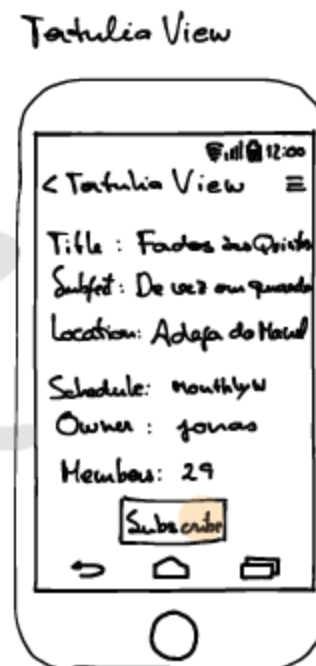 Tertulia View
12:00
< Tertulia View
Title : Fados às Quintas
Subject : De vez em quando
Location: Adega do Manel
Schedule: Monthly
Owner : jonas
Members: 29
Subscribe